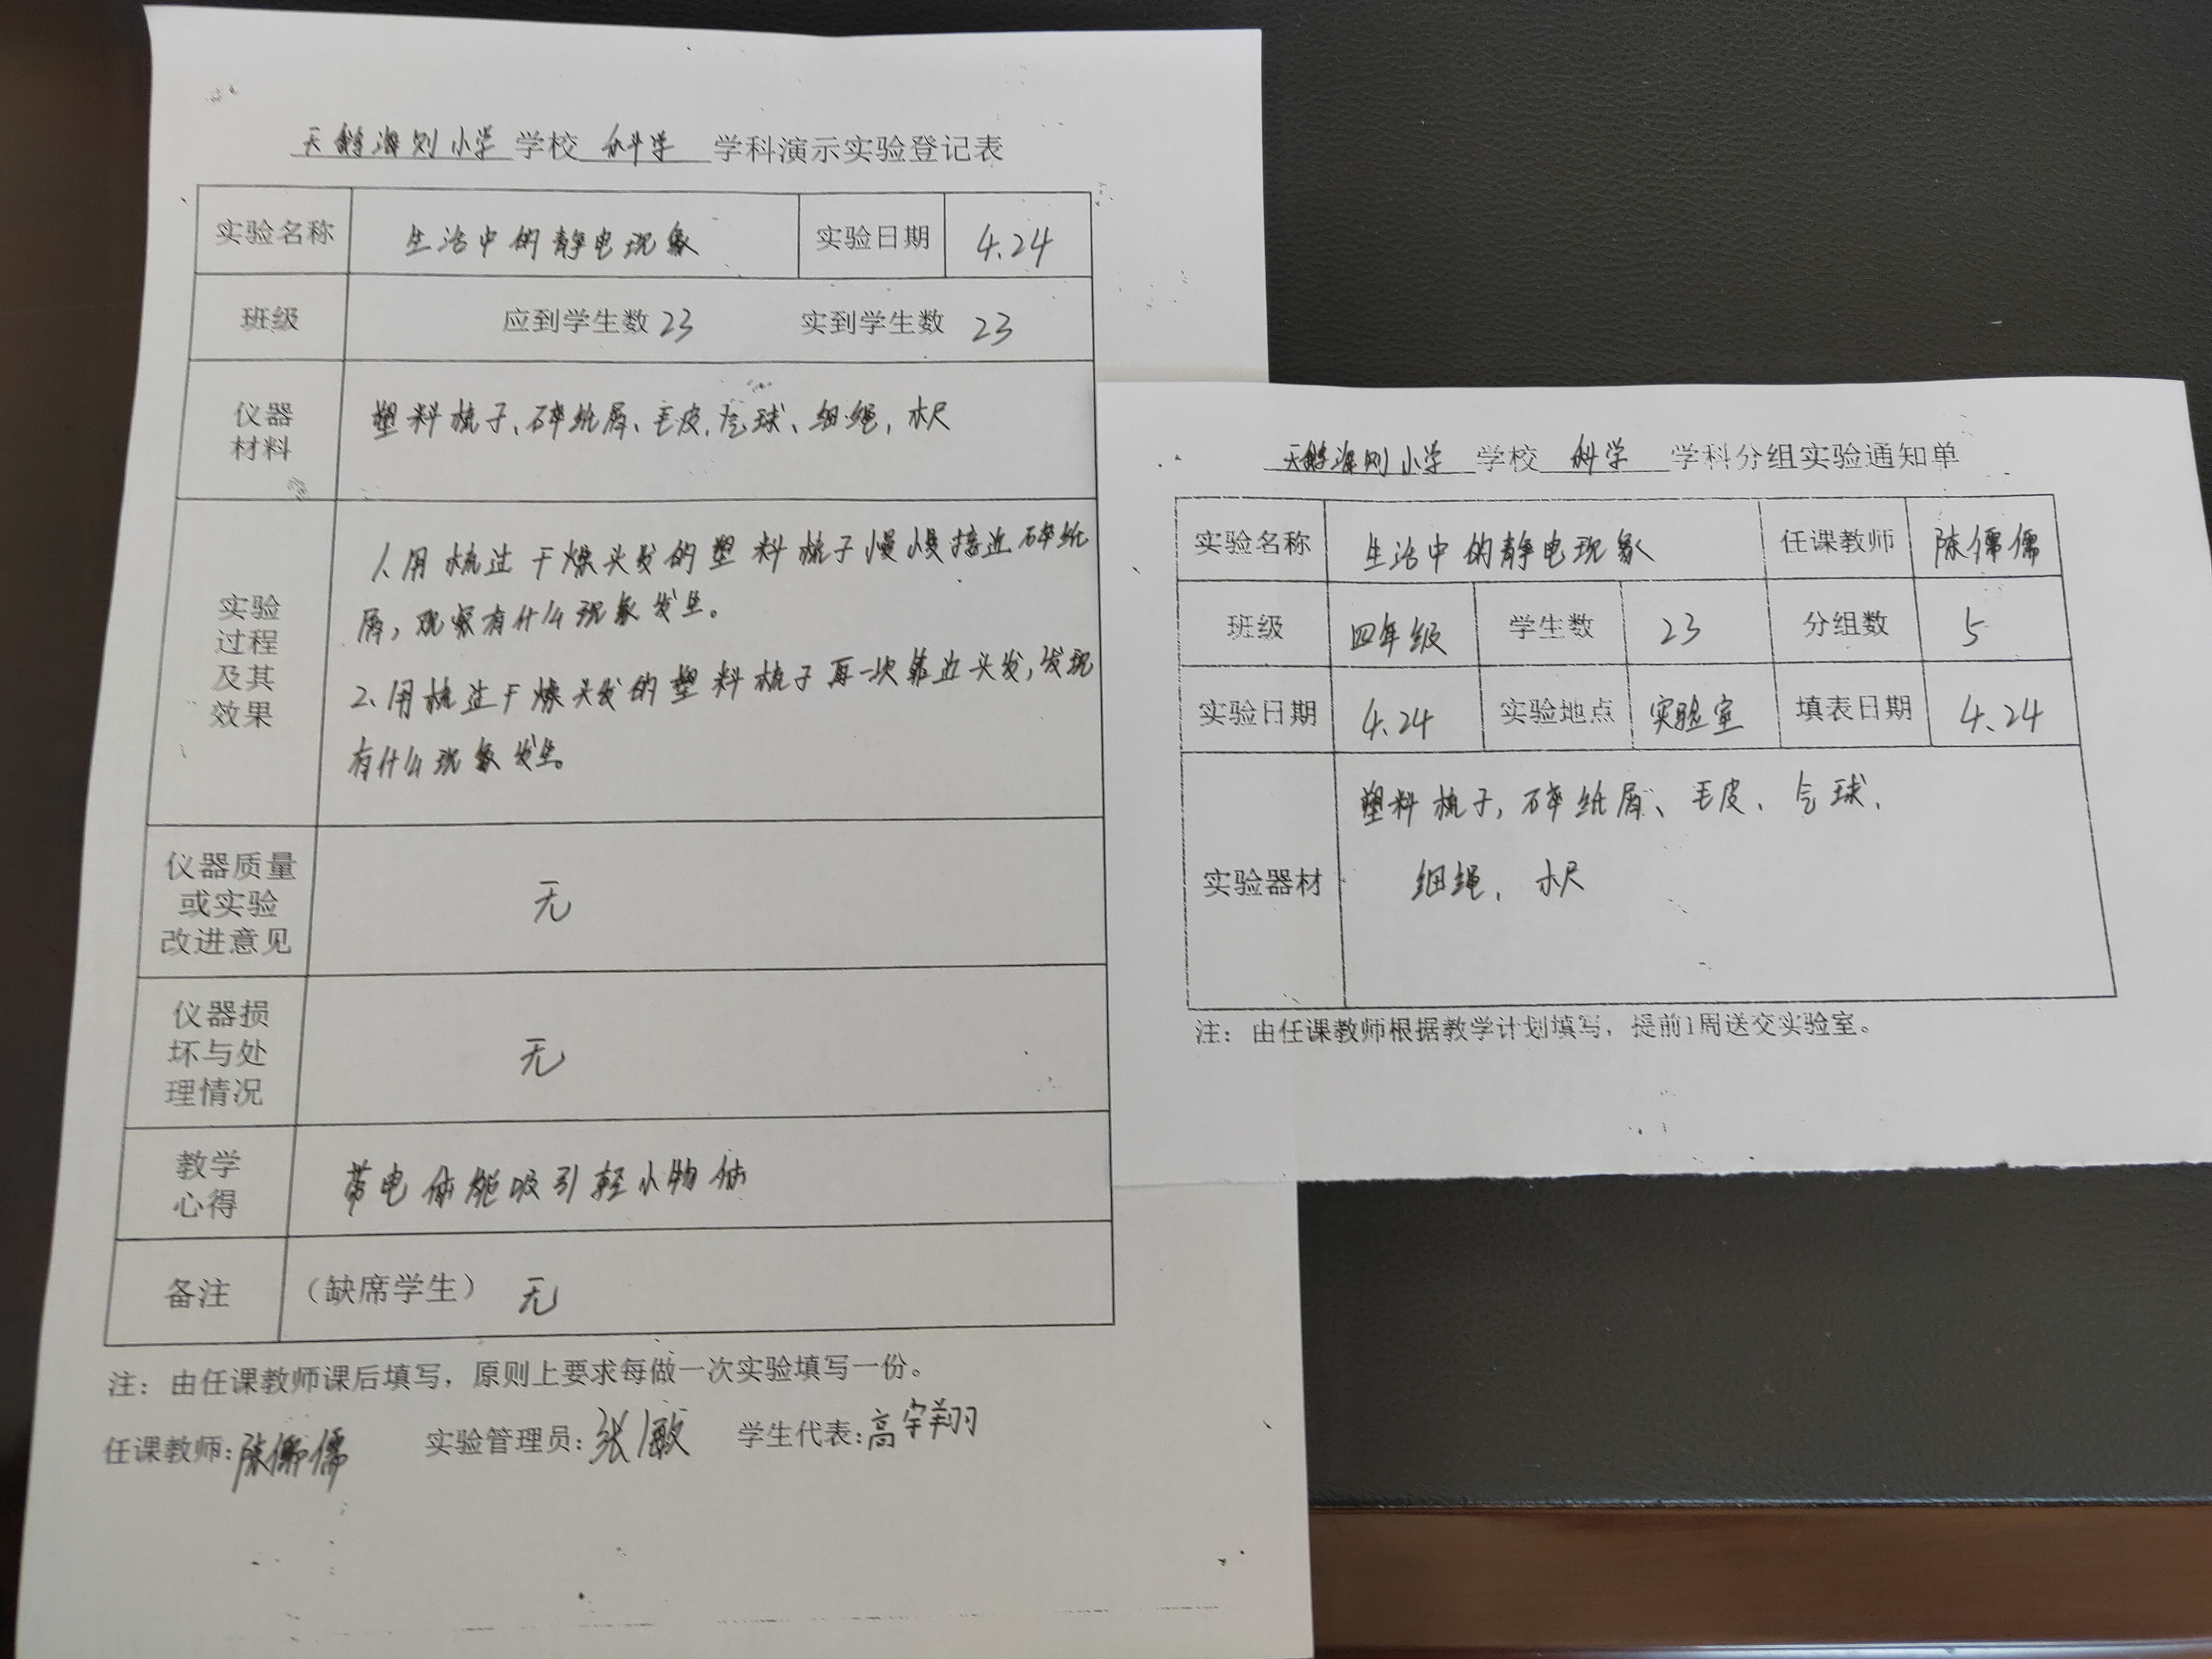 天鹅海则小学 学校 科学 学科演示实验登记表
实验名称 生活中的静电现象 实验日期 4.24
班级 应到学生数 23 实到学生数 23
仪器
材料
塑料梳子、碎纸屑、毛皮、气球、细绳、木尺
实验
过程
及其
效果
1.用梳过干燥头发的塑料梳子慢慢接近碎纸
屑,观察有什么现象发生。
2.用梳过干燥头发的塑料梳子再一次靠近头发,发现
有什么现象发生。
仪器质量
或实验
改进意见
无
仪器损
坏与处
理情况
无
教学
心得
带电体能吸引轻小物体
备注 (缺席学生) 无
注:由任课教师课后填写,原则上要求每做一次实验填写一份。
任课教师:陈儒儒 实验管理员:张敏 学生代表:高宇翔
天鹅海则小学 学校 科学 学科分组实验通知单
实验名称 生活中的静电现象 任课教师 陈儒儒
班级 四年级 学生数 23 分组数 5
实验日期 4.24 实验地点 实验室 填表日期 4.24
实验器材
塑料梳子,碎纸屑、毛皮、气球、
细绳、木尺
注:由任课教师根据教学计划填写,提前1周送交实验室。